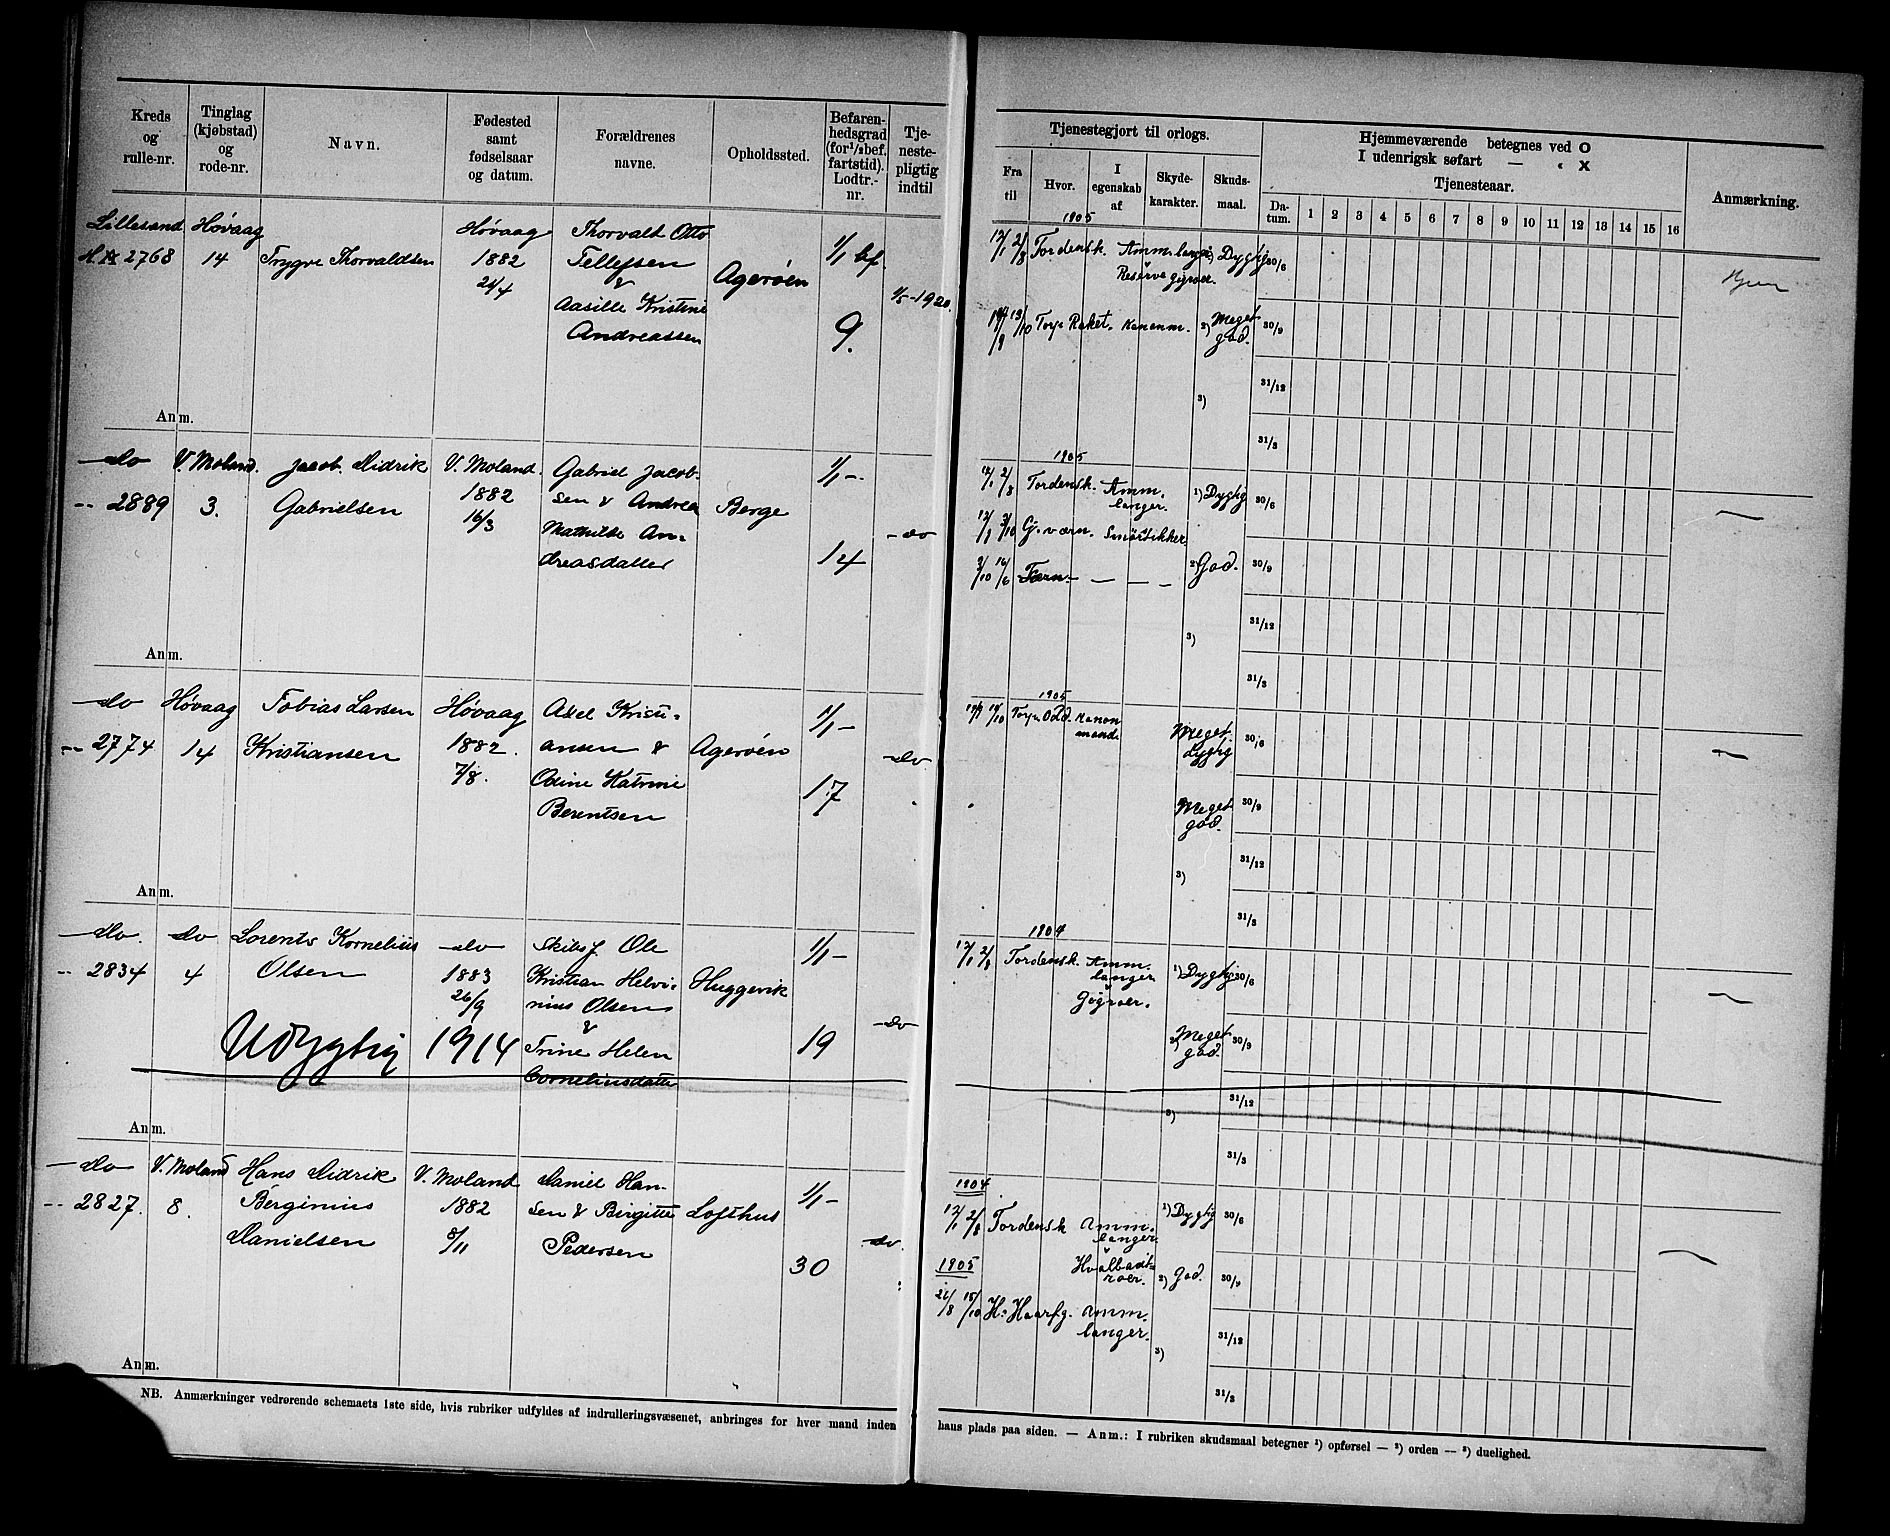 Kreds og rulle-nr.
Tinglag (kjøbstad) og rode-nr.
Navn.
Fødested samt fødselsaar og datum.
Forældrenes navne.
Opholdssted.
Befaren-hedsgrad (for 1/2 bef. fartstid). Lodtr.-nr.
Tje-neste-pligtig indtil
Tjenestegjort til orlogs.
Fra til
Hvor.
I egenskab af
Skyde-karakter.
Skuds-maal.
Hjemmeværende betegnes ved O
I udenrigsk søfart — " X
Tjenesteaar.
Da-tum. 1 2 3 4 5 6 7 8 9 10 11 12 13 14 15 16
Anmærkning.
Lillesand Høvaag Høvaag Thorvald Otto 1/1 bf.
2768 14 Trygve Thorvaldsen 1882 Tellefsen Agerøen
24/4 &
Aasille Kristine
Andreassen 9.
1/5-1920.
1905
12/1 2/8 Tordensk. Amm.langer 1) Dygtig 30/6 Hjem
Reserve gigroer.
13/10 Torp. Raket. Kanonm. 2) Meget god. 30/9
3) 31/12
31/3
Anm.
do V. Moland. Jacob Didrik V. Moland. Gabriel Jacob- 1/1 -
-- 2889 3. Gabrielsen 1882 sen & Andrea Berge
16/3 Mathilde An- do
dreasdatter 14
1905
12/1 2/8 Tordensk. Amm. langer. 1) Dygtig 30/6
3/10 G. værn. Smørstikker
3/10 16/6 Færn. — — — — 2) God. 30/9
3) 31/12
31/3
Anm.
do Høvaag Tobias Larsen Høvaag Axel Kristi- 1/1 -
-- 2774 14 Kristiansen 1882. ansen & Agerøen do
7/8. Odine Katrine 17
Berentsen
1905
Torp. Odd. Kanon mand. Meget Dygtig 30/6
Meget god. 30/9
3) 31/12
31/3
Anm.
do. do Lorents Kornelius do Skibsf. Ole 1/1 -
-- 2834 4 Olsen 1883 Kristian Helvi- Huggevik
26/9 nius Olsen do
&
Udygtig 1914 Trine Helen 19
Corneliusdatter
1904
12/1 2/8 Tordensk. Amm. langer 1) Dygtig 30/6
Gigroer.
2) Meget god. 30/9
3) 31/12
31/3
Anm.
do V. Moland Hans Didrik V. Moland Daniel Han- 1/1 -
-- 2827. 8. Berginius 1882 sen & Birgitte Lofthus
Danielsen 5/11 Pedersen do.
30
1904
12/1 2/8 Tordensk Amm. langer. 1) Dygtig 30/6
Hvalbaadt- roer. 2) God. 30/9
1905
21/8 15/10 H. Haarfg. Amm. langer. 31/12
3)
31/3
Anm.
NB. Anmærkninger vedrørende schemaets 1ste side, hvis rubriker udfyldes af indrulleringsvæsenet, anbringes for hver mand inden
hans plads paa siden. — Anm.: I rubriken skudsmaal betegner ¹) opførsel — ²) orden — ³) duelighed.